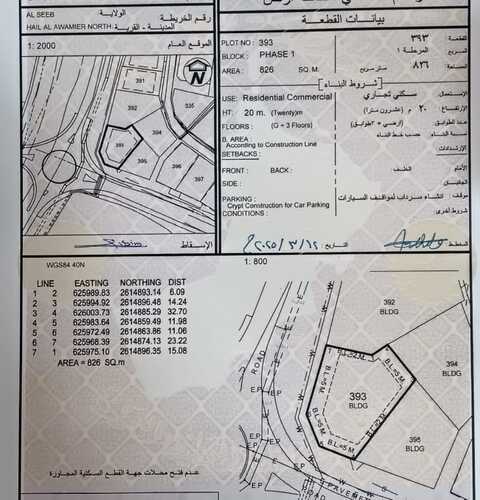 AL SEEB
الولاية
رقم الخريطة
HAIL AL AWAMIER NORTH
المدينة - القرية
1: 2000
الموقع العام
بيانات القطعة
PLOT NO : 393
القطعة ٣٩٣
BLOCK : PHASE 1
المرحلة ١ مربع
AREA : 826 SQ. M.
متر مربع ٨٢٦ المساحة
شروط البناء
USE: Residential Commercial
سكني تجاري الاستعمال
HT: 20 m. (Twenty)m
٢٠ م (عشرون مترا) ارتفاع
FLOORS : (G + 3 Floors)
(أرضي + ٣ طوابق) عدد الطوابق
B. AREA : According to Construction Line
حسب خط البناء
SETBACKS :
الإرتدادات
FRONT : BACK :
الخلف الأمام
SIDE :
الجانبان
PARKING : Crypt Construction for Car Parking
انشاء سرداب لمواقف السيارات موقف
CONDITIONS :
شروط أخرى
391
392
535
394
393
395
396
397
الإسقاط
التاريخ: ٢٠٢٥/٣/١٢
المخطط
WGS84 40N
1 : 800
LINE EASTING NORTHING DIST
1 2 625989.83 2614893.14 6.09
2 3 625994.92 2614896.48 14.24
3 4 626003.73 2614885.29 32.70
4 5 625983.64 2614859.49 11.98
5 6 625972.49 2614863.86 11.06
6 7 625968.39 2614874.13 23.22
7 1 625975.10 2614896.35 15.08
AREA = 826 SQ.m
392
BLDG
394
BLDG
393
BLDG
BLDG
B.L=5M.
B.L=5M.
B.L=5M.
B.L=5M.
ROAD
E.P
E.P
E.P
E.P
PAVEMENT
ROAD
عدم فتح محلات جهة القطع السكنية المجاورة